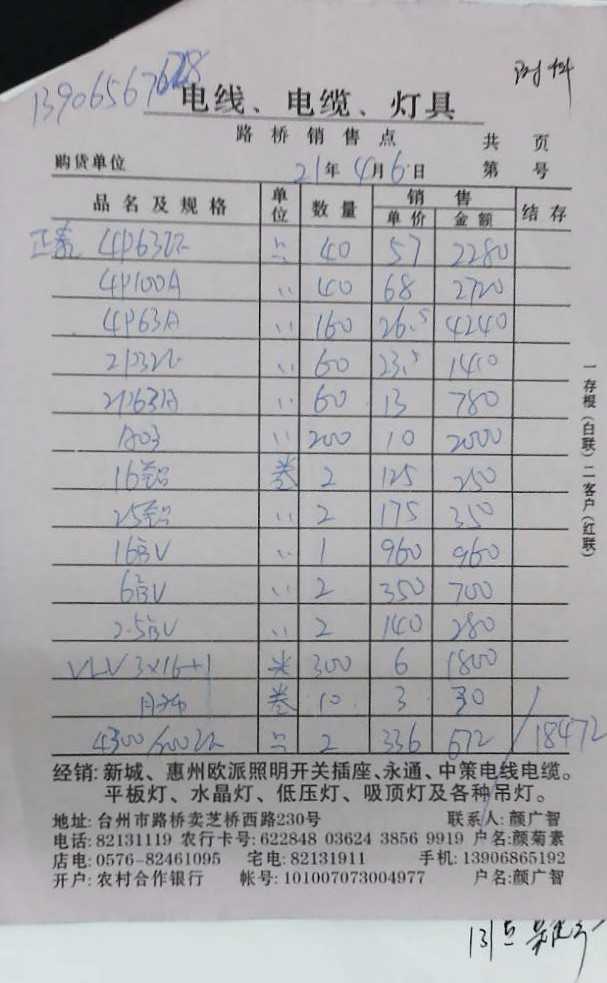 附件
13906567628
电线、电缆、灯具
路桥销售点 共 页
购货单位 21年4月6日 第 号
品名及规格 单位 数量 销售 单价 金额 结存
正泰 4P63 只 40 57 2280
4P100A 〃 40 68 2720
4P63A 〃 160 26.5 4240
2P32 〃 60 23.5 1410
2P63A 〃 60 13 780
A03 〃 200 10 2000
16铝 卷 2 125 250
25铝 〃 2 175 350
16BV 〃 1 960 960
6BV 〃 2 350 700
2.5BV 〃 2 140 280
VLV 3×16+1 米 300 6 1800
卷 10 3 30
4300/500 只 2 336 672 18472
一存根(白联)二客户(红联)
经销:新城、惠州欧派照明开关插座、永通、中策电线电缆。
平板灯、水晶灯、低压灯、吸顶灯及各种吊灯。
地址:台州市路桥卖芝桥西路230号 联系人:颜广智
电话:82131119 农行卡号:622848 03624 3856 9919 户名:颜菊素
店电:0576-82461095 宅电:82131911 手机:13906865192
开户:农村合作银行 帐号:101007073004977 户名:颜广智